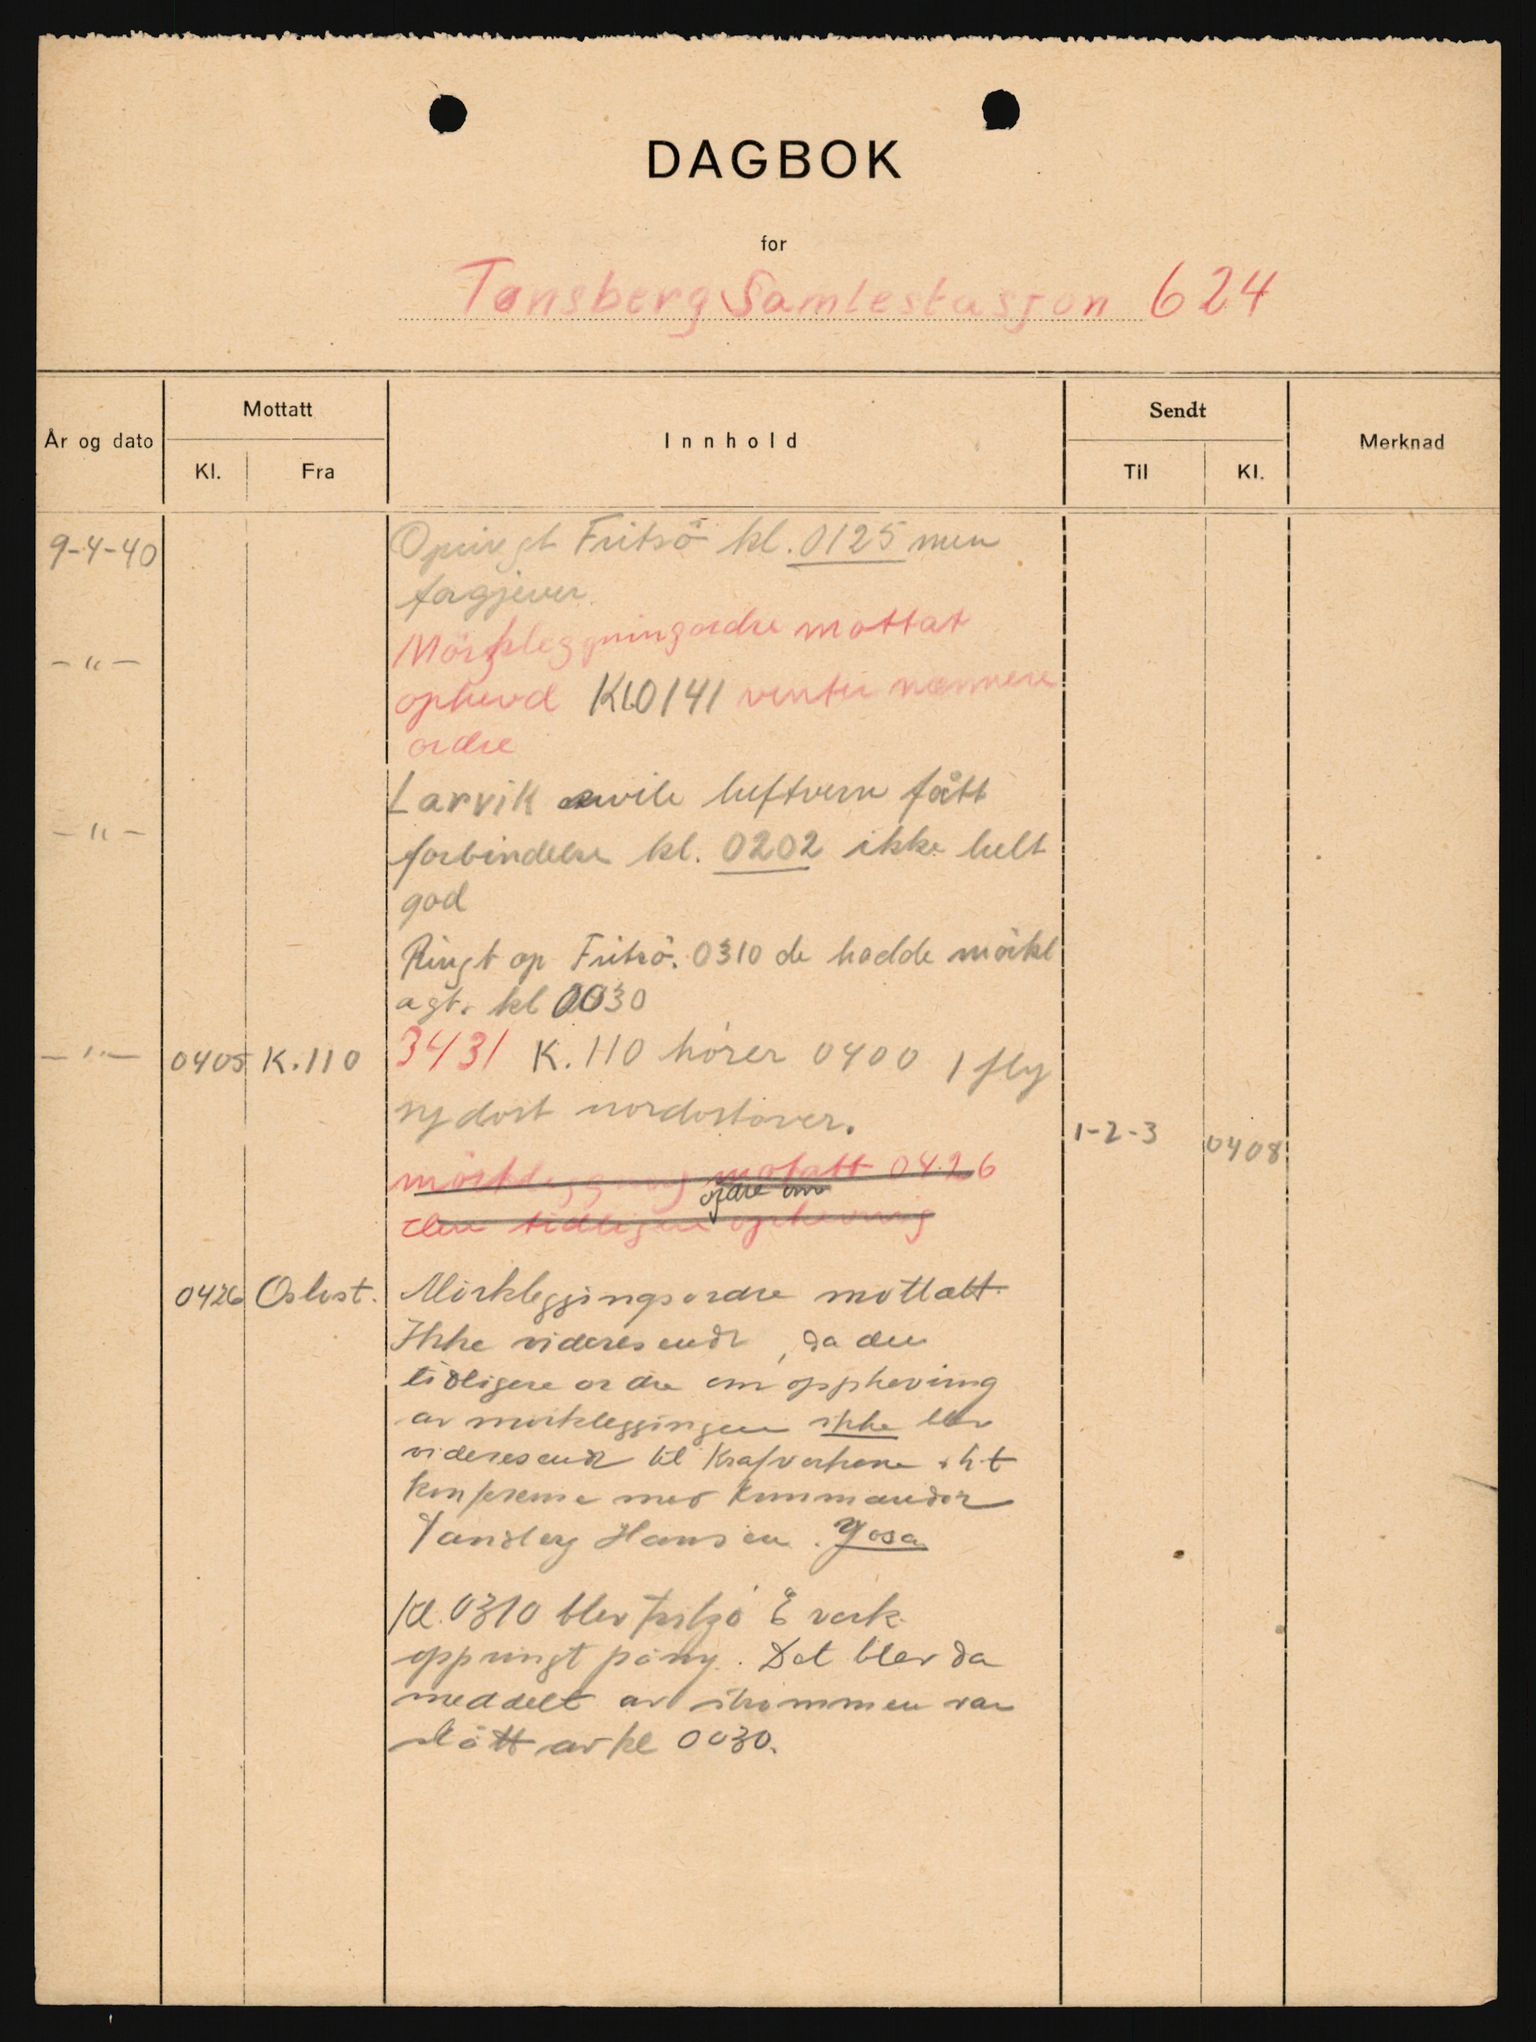 DAGBOK
for
Tønsberg Samlestasjon 624
År og dato Mottatt Innhold Sendt Merknad
Kl. Fra Til Kl.
9-4-40 Opringt Fritsö kl. 0125 men
forgjeves.
-"- Mörkleggningordre mottat
ophevd Kl 0141 venter nærmere
ordre
Larvik sivile luftvern fått
-"- forbindelse kl. 0202 ikke helt
god
Ringt op Fritsö. 0310 de hadde mörkl
agt. kl 0030
-"- 0405 K.110 3431 K.110 hörer 0400 1 fly
sydost nordostover.
1-2-3 0408
mörklegging motatt 0426
ordre om
den tidligere opheving
0426 Oslost. Mörkleggingsordre mottatt.
Ikke videresendt, da den
tidligere ordre om oppheving
av mörkleggingen ikke blev
videresendt til Krafverkene i h t
konferense med Kommandör
Tandberg Hansen.
Kl. 0310 blev Fritzö E verk
oppringt påny. Det blev da
meddelt at strömmen var
slått av kl 0030.